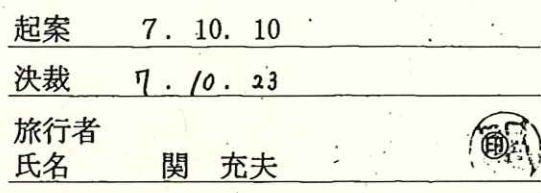 起案 7. 10. 10
決裁 7. 10. 23
旅行者
氏名 関 充夫 ㊞